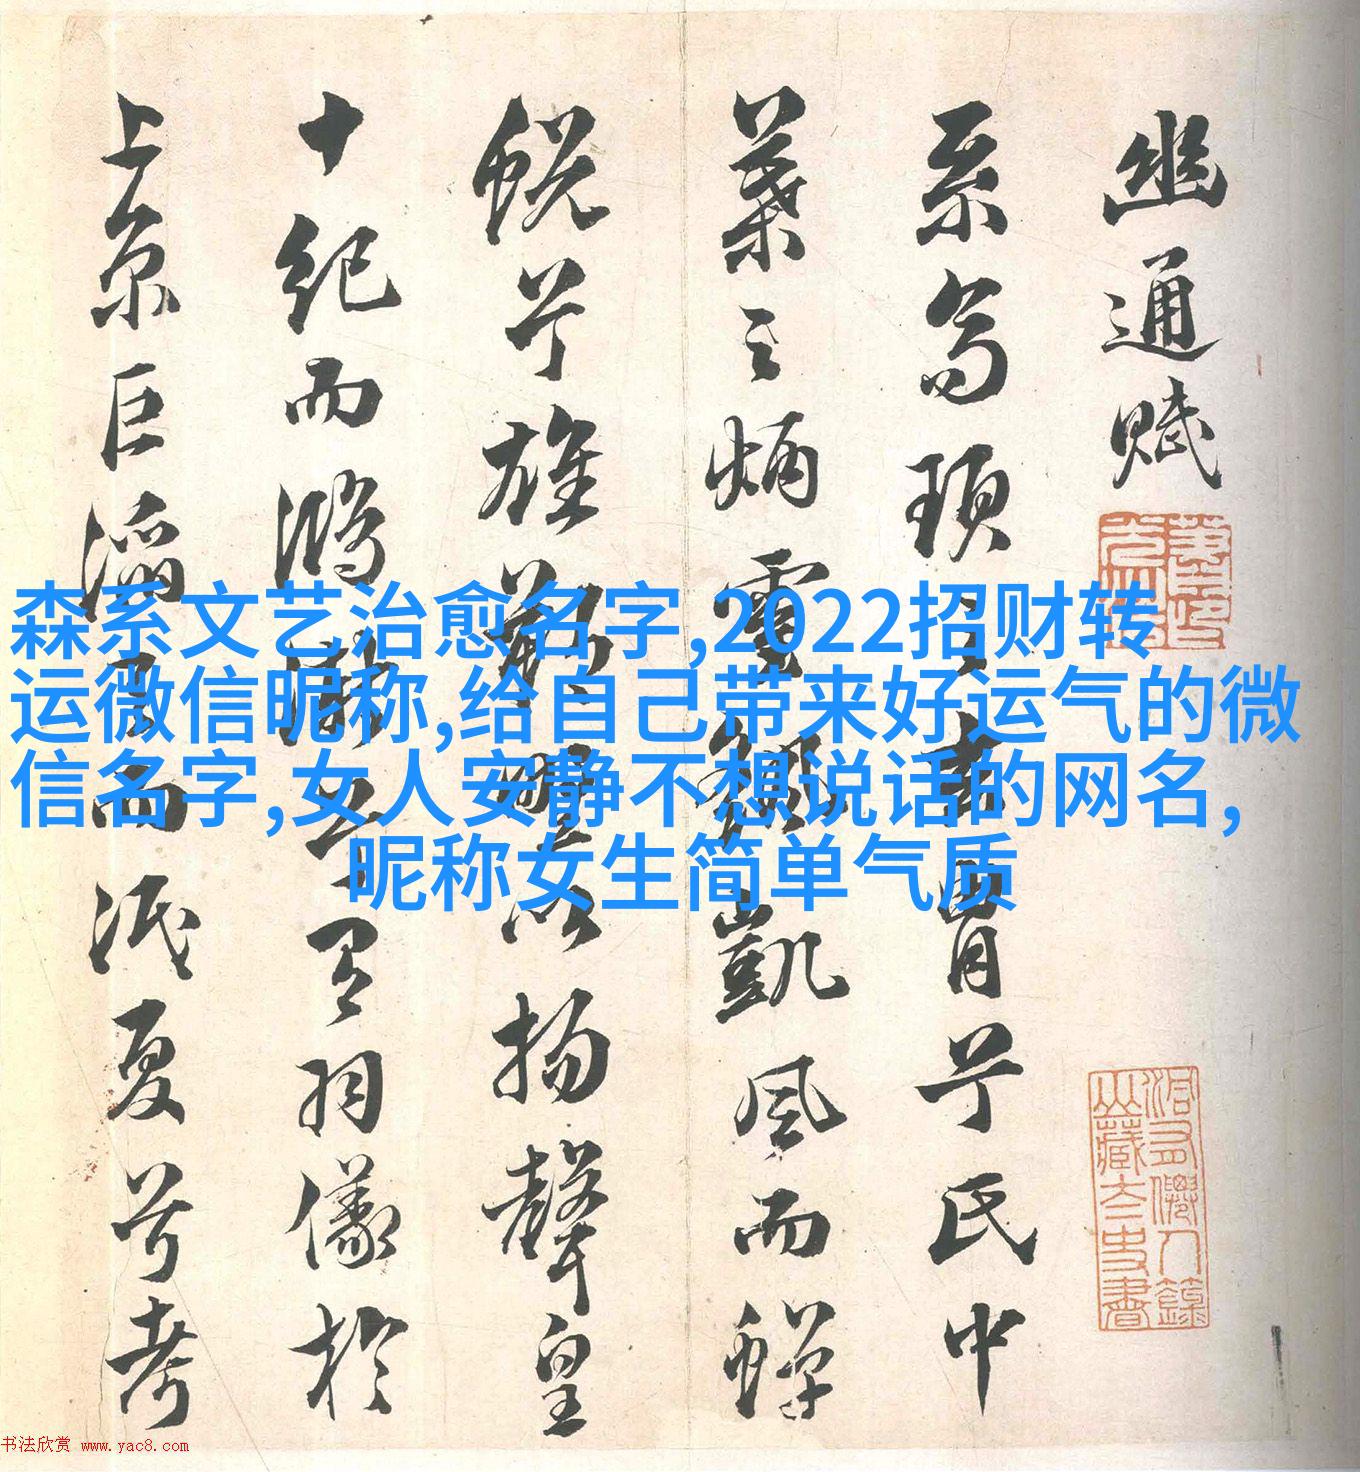 幽通賦
系高頊之玄胄兮氏中
葉之炳靈繇凱風而蟬
蛻兮雄朔野以揚聲皇
十紀而鴻漸兮有羽儀於
上京巨滔天而泯夏兮考
森系文艺治愈名字,2022招财转
运微信昵称,给自己带来好运气的微
信名字,女人安静不想说话的网名,
昵称女生简单气质
书法欣赏 www.yac8.com